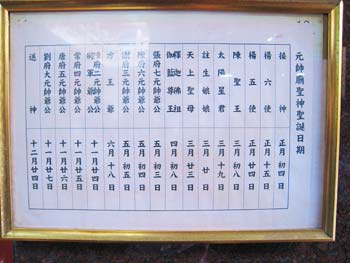 元帥廟聖神聖誕日期
接神 正月初四日
楊六使 正月十五日
楊五使 正月廿四日
陳聖王 三月初八日
太陽星君 三月十九日
註生娘娘 三月廿日
天上聖母 三月廿三日
釋迦佛祖 四月初八日
伽藍尊王
張府七元帥爺公 五月初三日
陳府六元帥爺公 五月初四日
謝府三元帥爺公 五月初五日
方王爺 六月十八日
將軍爺公
府二元帥爺公 十一月廿四日
常府四元帥爺公 十一月廿五日
唐府五元帥爺公 十一月廿六日
劉府大元帥爺公 十一月廿七日
送神 十二月廿四日